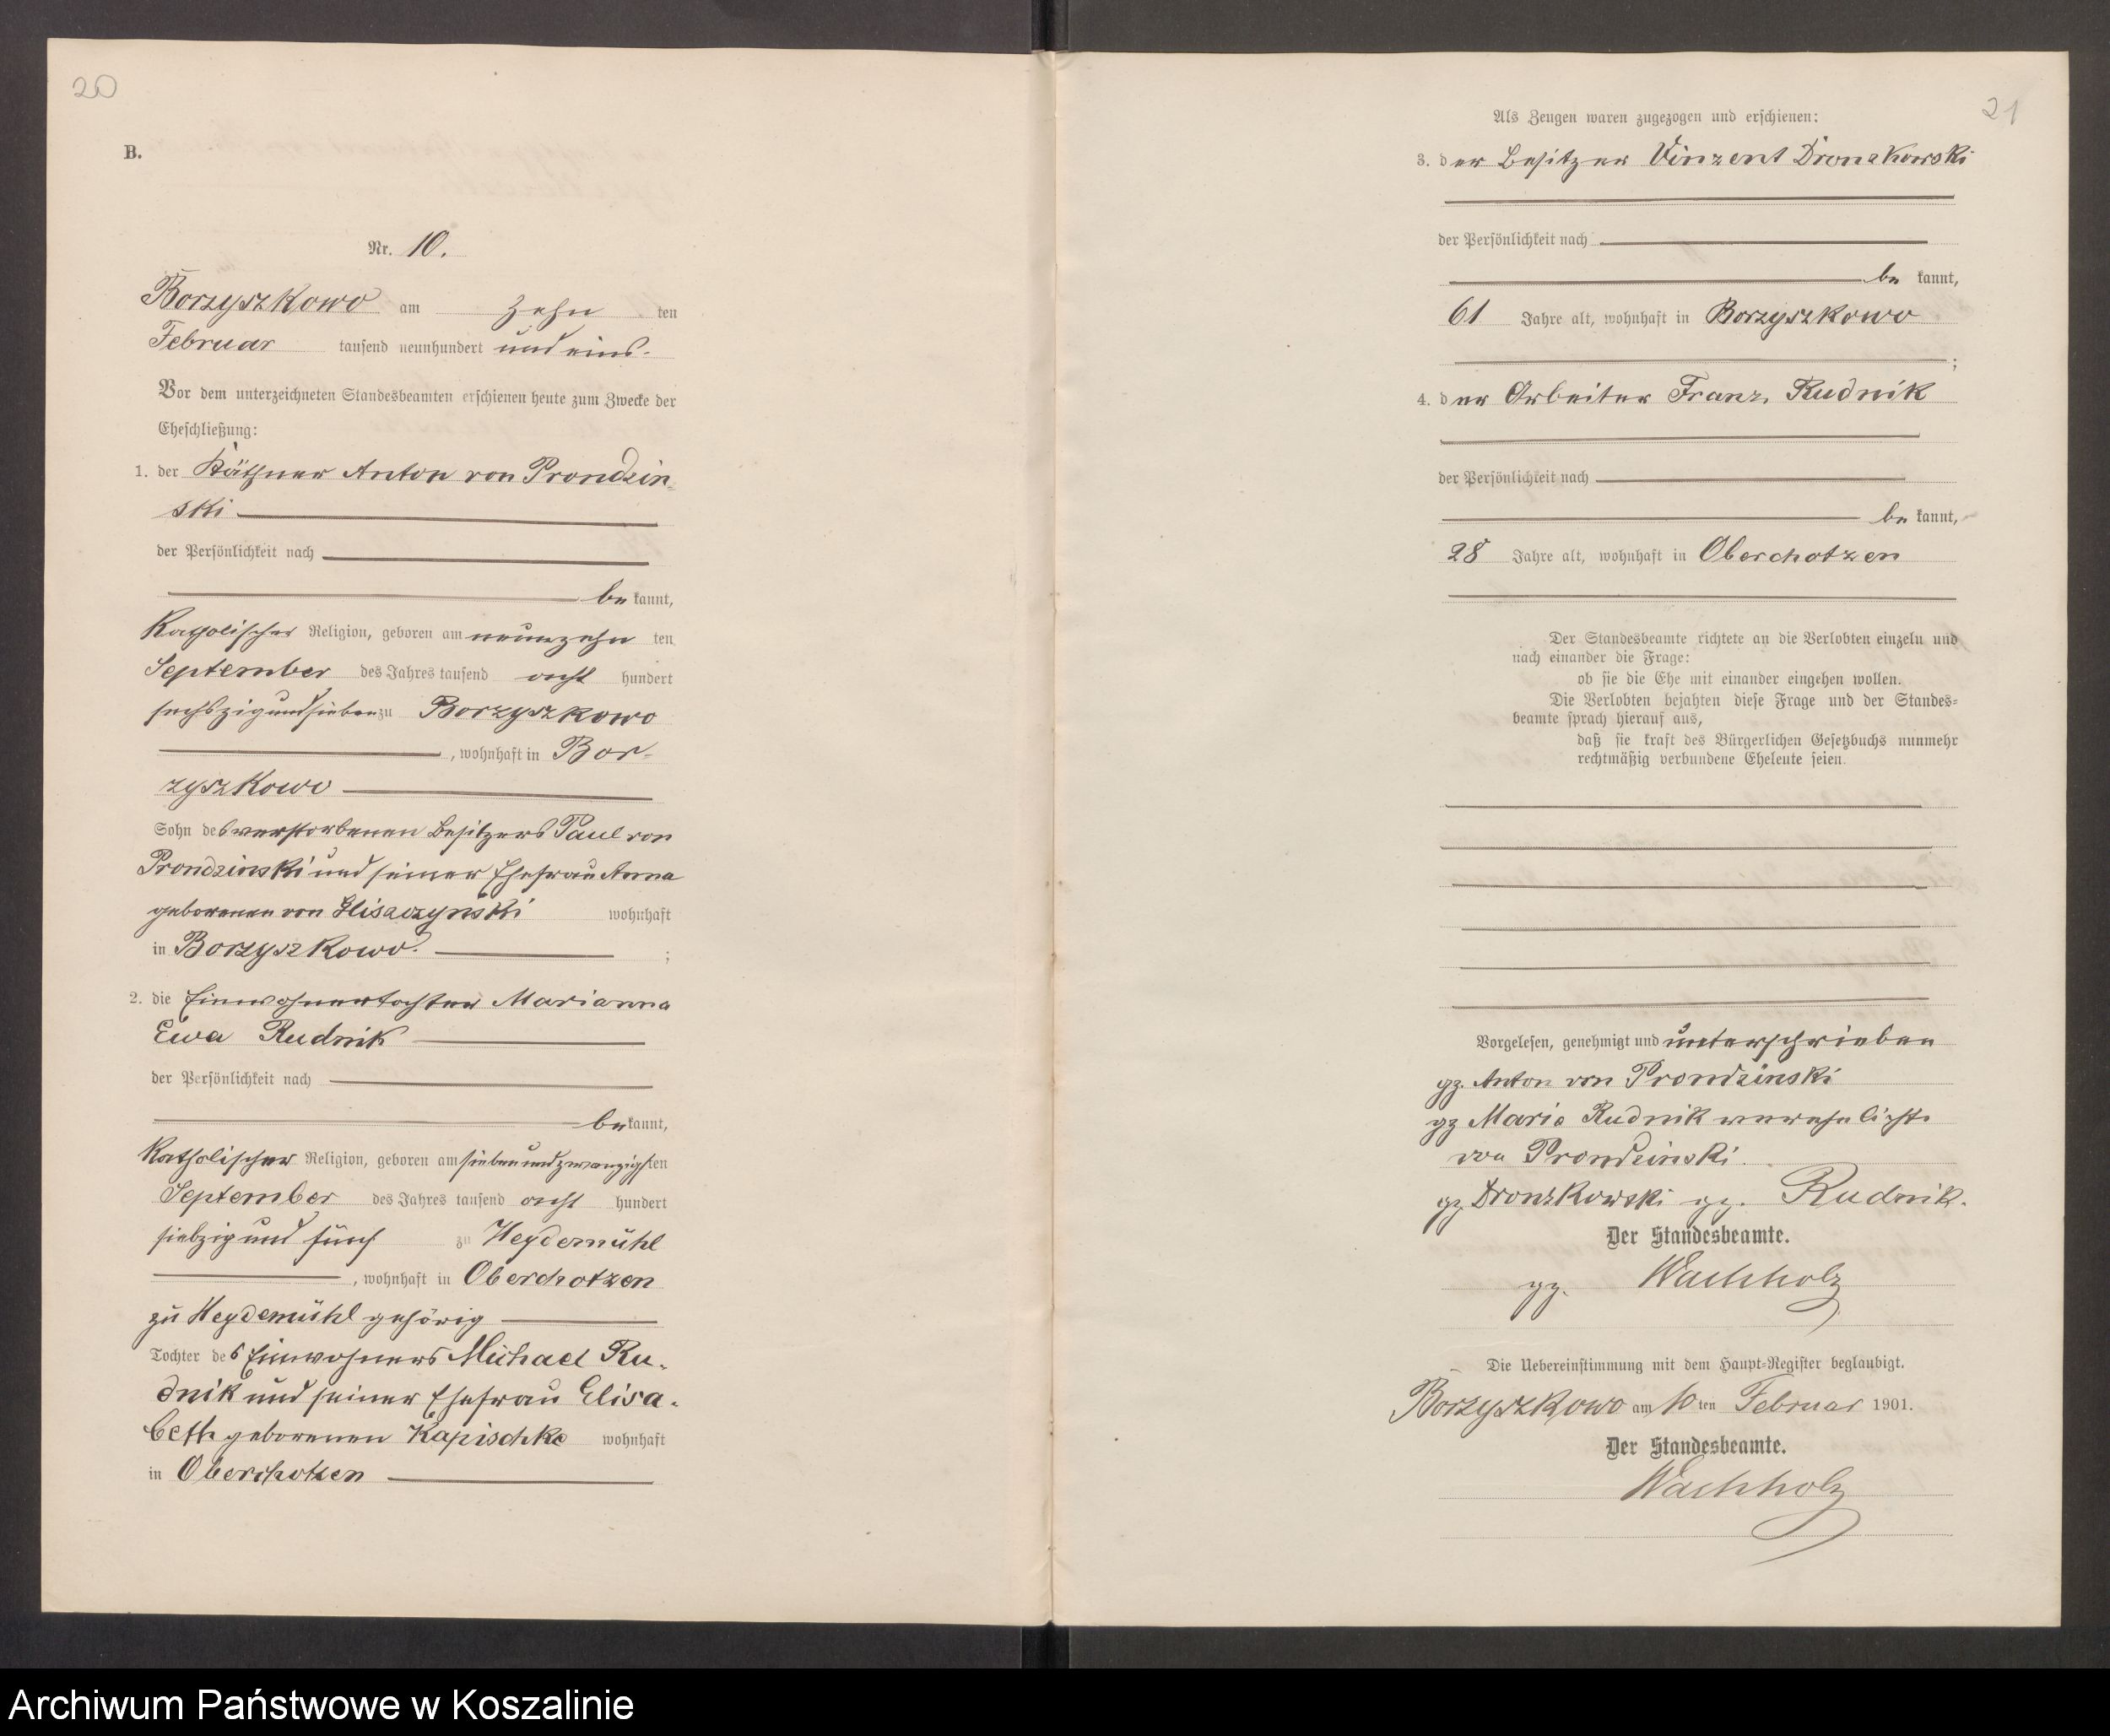 20
B.
Nr. 10.
Borzyszkowo am zehn ten
Februar tausend neunhundert und eins.
Vor dem unterzeichneten Standesbeamten erschienen heute zum Zwecke der
Eheschließung:
1. der Käthner Anton von Prondzin-
ski
der Persönlichkeit nach
be kannt,
katholischer Religion, geboren am neunzehn ten
September des Jahres tausend acht hundert
sechszig und sieben zu Borzyszkowo
, wohnhaft in Bor-
zyszkowo
Sohn des verstorbenen Besitzers Paul von
Prondzinski und seiner Ehefrau Anna
geborenen von wohnhaft
in Borzyszkowo. ;
2. die Einwohnertochter Marianna
Ewa Rudnik
der Persönlichkeit nach
be kannt,
katholischer Religion, geboren am siebenundzwanzigsten
September des Jahres tausend acht hundert
siebzig und fünf zu Heydemühl
, wohnhaft in Oberchotzen
zu Heydemühl gehörig
Tochter des Einwohners Michael Ru-
dnik und seiner Ehefrau Elisa-
beth geborenen Kapischke wohnhaft
in Oberchotzen
21
Als Zeugen waren zugezogen und erschienen:
3. der Besitzer Vinzent Dronzkowski
der Persönlichkeit nach
be kannt,
61 Jahre alt, wohnhaft in Borzyszkowo
;
4. der Arbeiter Franz Rudnik
der Persönlichkeit nach
be kannt,
28 Jahre alt, wohnhaft in Oberchotzen
Der Standesbeamte richtete an die Verlobten einzeln und
nach einander die Frage:
ob sie die Ehe mit einander eingehen wollen.
Die Verlobten bejahten diese Frage und der Standes-
beamte sprach hierauf aus,
daß sie kraft des Bürgerlichen Gesetzbuchs nunmehr
rechtmäßig verbundene Eheleute seien.
Vorgelesen, genehmigt und unterschrieben
gz. Anton von Prondzinski
gz Marie Rudnik verehelichte
von Prondzinski.
gz Dronzkowski gz. Rudnik.
Der Standesbeamte.
gz. Wachholz
Die Uebereinstimmung mit dem Haupt-Register beglaubigt.
Borzyszkowo am 10 ten Februar 1901.
Der Standesbeamte.
Wachholz
Archiwum Państwowe w Koszalinie